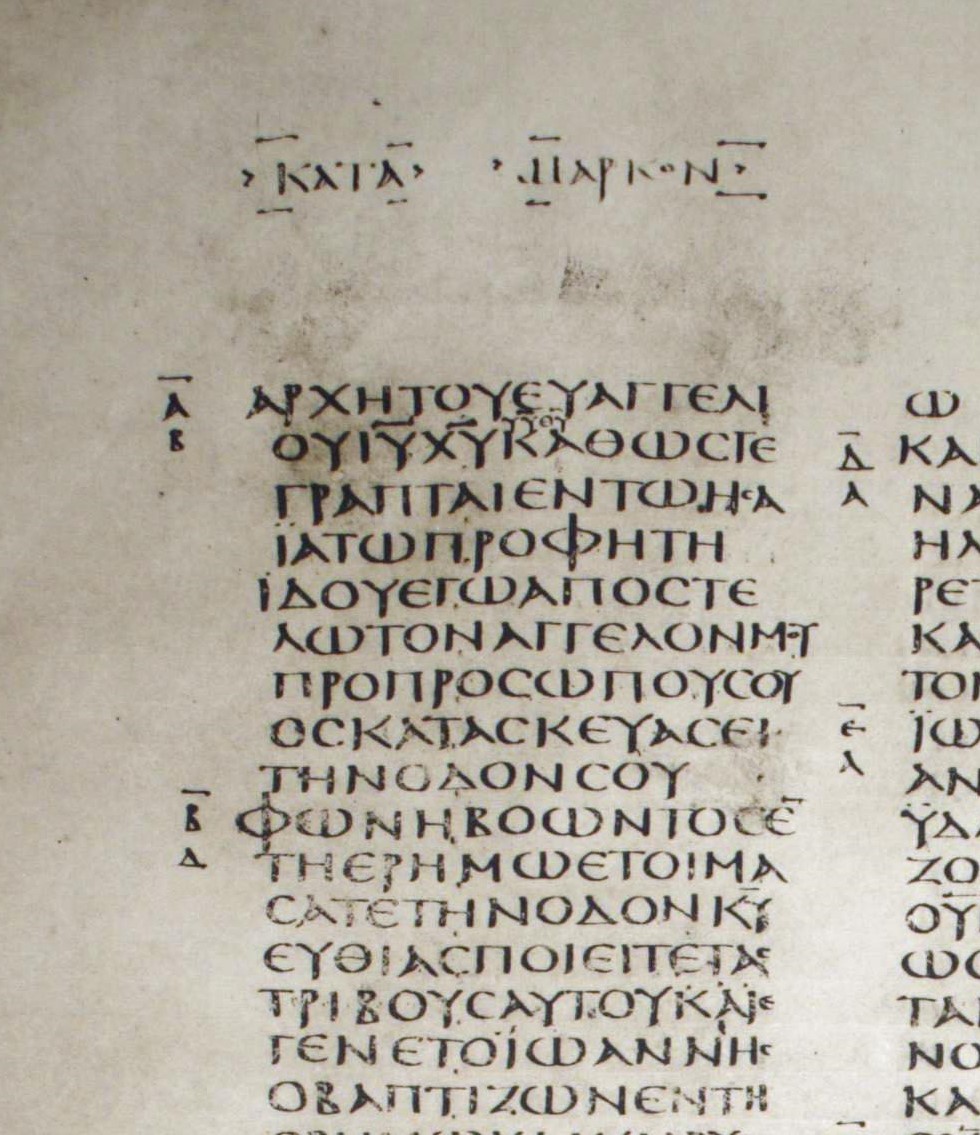 ΚΑΤΑ ΜΑΡΚΟΝ
Α̅ ΑΡΧΗΤΟΥΕΥΑΓΓΕΛΙ
Β ΟΥΙ̅Υ̅Χ̅Υ̅ΚΑΘΩϹΓΕ
ΓΡΑΠΤΑΙΕΝΤΩΗϹΑ
ΪΑΤΩΠΡΟΦΗΤΗ
ΙΔΟΥΕΓΩΑΠΟϹΤΕ
ΛΩΤΟΝΑΓΓΕΛΟΝΜΟΥ
ΠΡΟΠΡΟϹΩΠΟΥϹΟΥ
ΟϹΚΑΤΑϹΚΕΥΑϹΕΙ
ΤΗΝΟΔΟΝϹΟΥ
Β̅ ΦΩΝΗΒΟΩΝΤΟϹΕ̅
Δ ΤΗΕΡΗΜΩΕΤΟΙΜΑ
ϹΑΤΕΤΗΝΟΔΟΝΚ̅Υ̅
ΕΥΘΙΑϹΠΟΙΕΙΤΕΤΑϹ
ΤΡΙΒΟΥϹΑΥΤΟΥΚΑΙΕ
ΓΕΝΕΤΟΪΩΑΝΝΗϹ
ΟΒΑΠΤΙΖΩΝΕΝΤΗ
Ω
Δ̅ ΚΑ
Α ΝΑ
ΗΛ
ΡΕΤ
ΚΑ
ΤΟΝ
Ε̅ ΪΩ
Α ΑΝ
ΫΔΑ
ΖΟ
ΟΥ
ΩϹ
ΤΑ
ΝΟ
ΚΑ